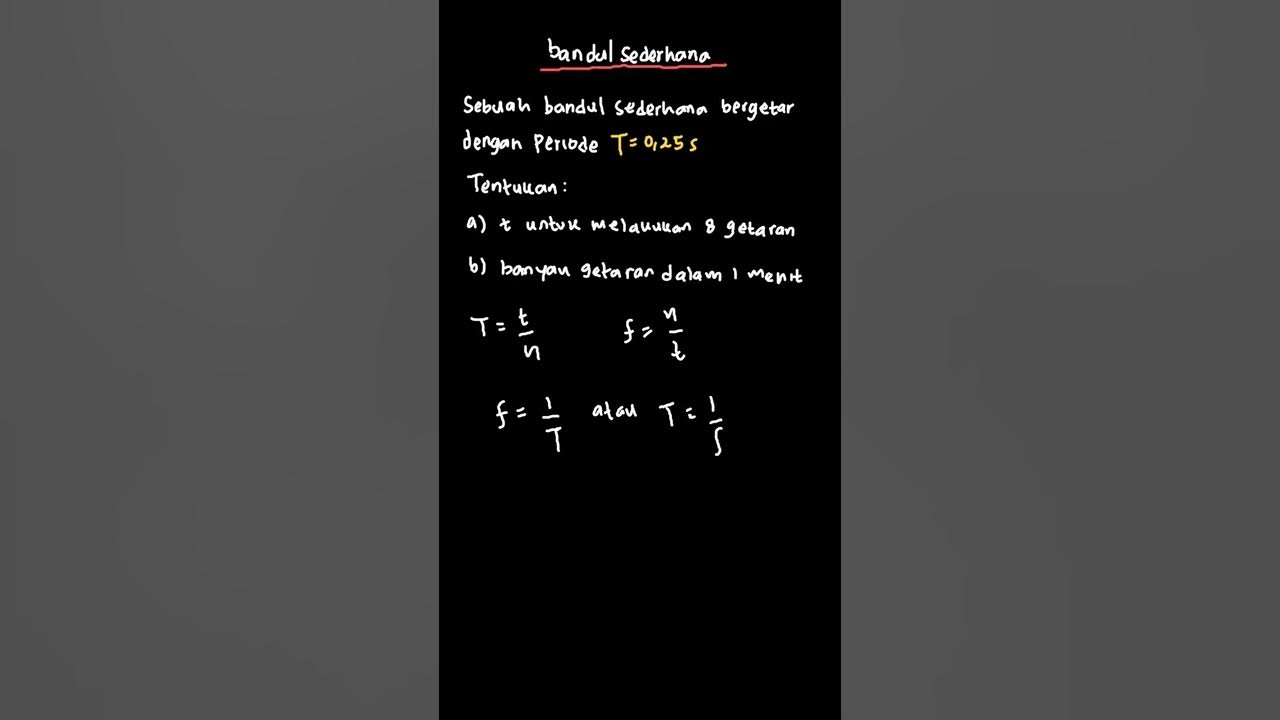 bandul sederhana
Sebuah bandul sederhana bergetar
dengan Periode T = 0,25 s
Tentukan :
a) t untuk melakukan 8 getaran
b) banyak getaran dalam 1 menit
T = t/n f = n/t
f = 1/T atau T = 1/f